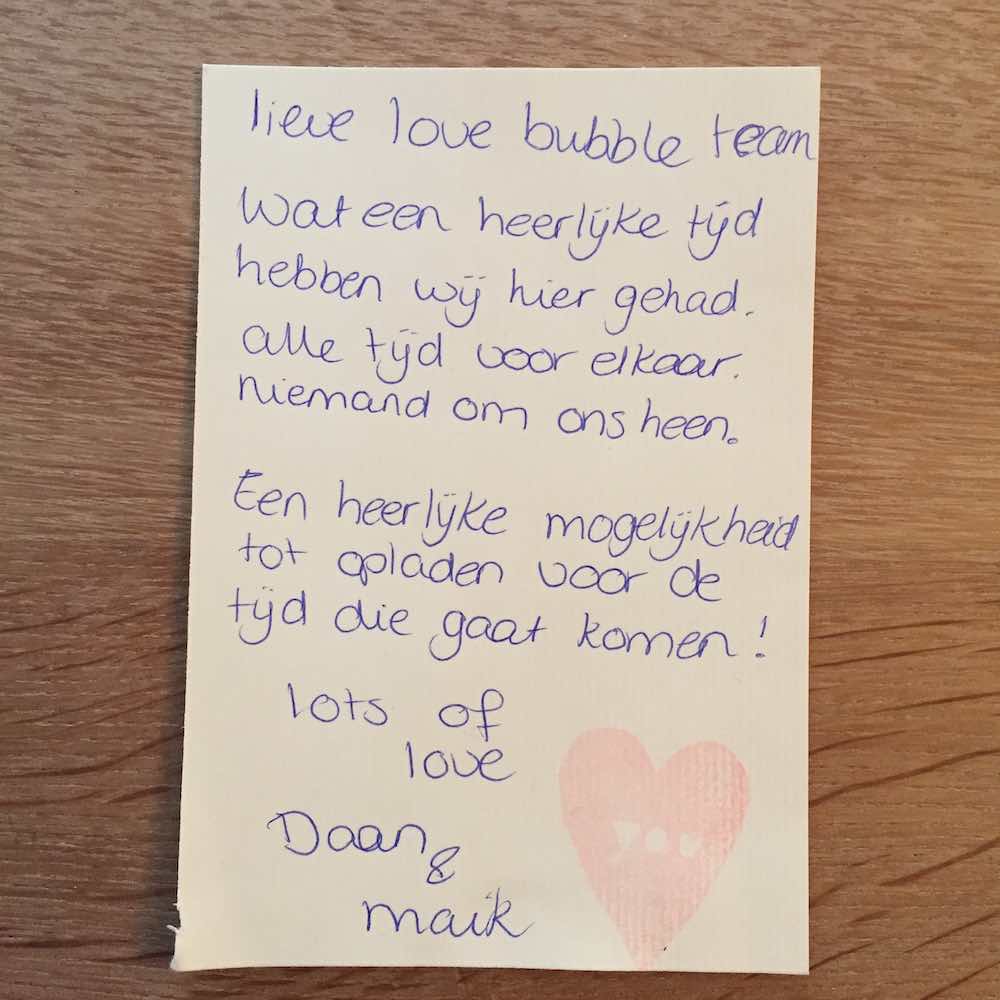 lieve love bubble team
Wat een heerlijke tijd
hebben wij hier gehad.
alle tijd voor elkaar.
niemand om ons heen.
Een heerlijke mogelijkheid
tot opladen voor de
tijd die gaat komen!
lots of
love
Daan
&
maik